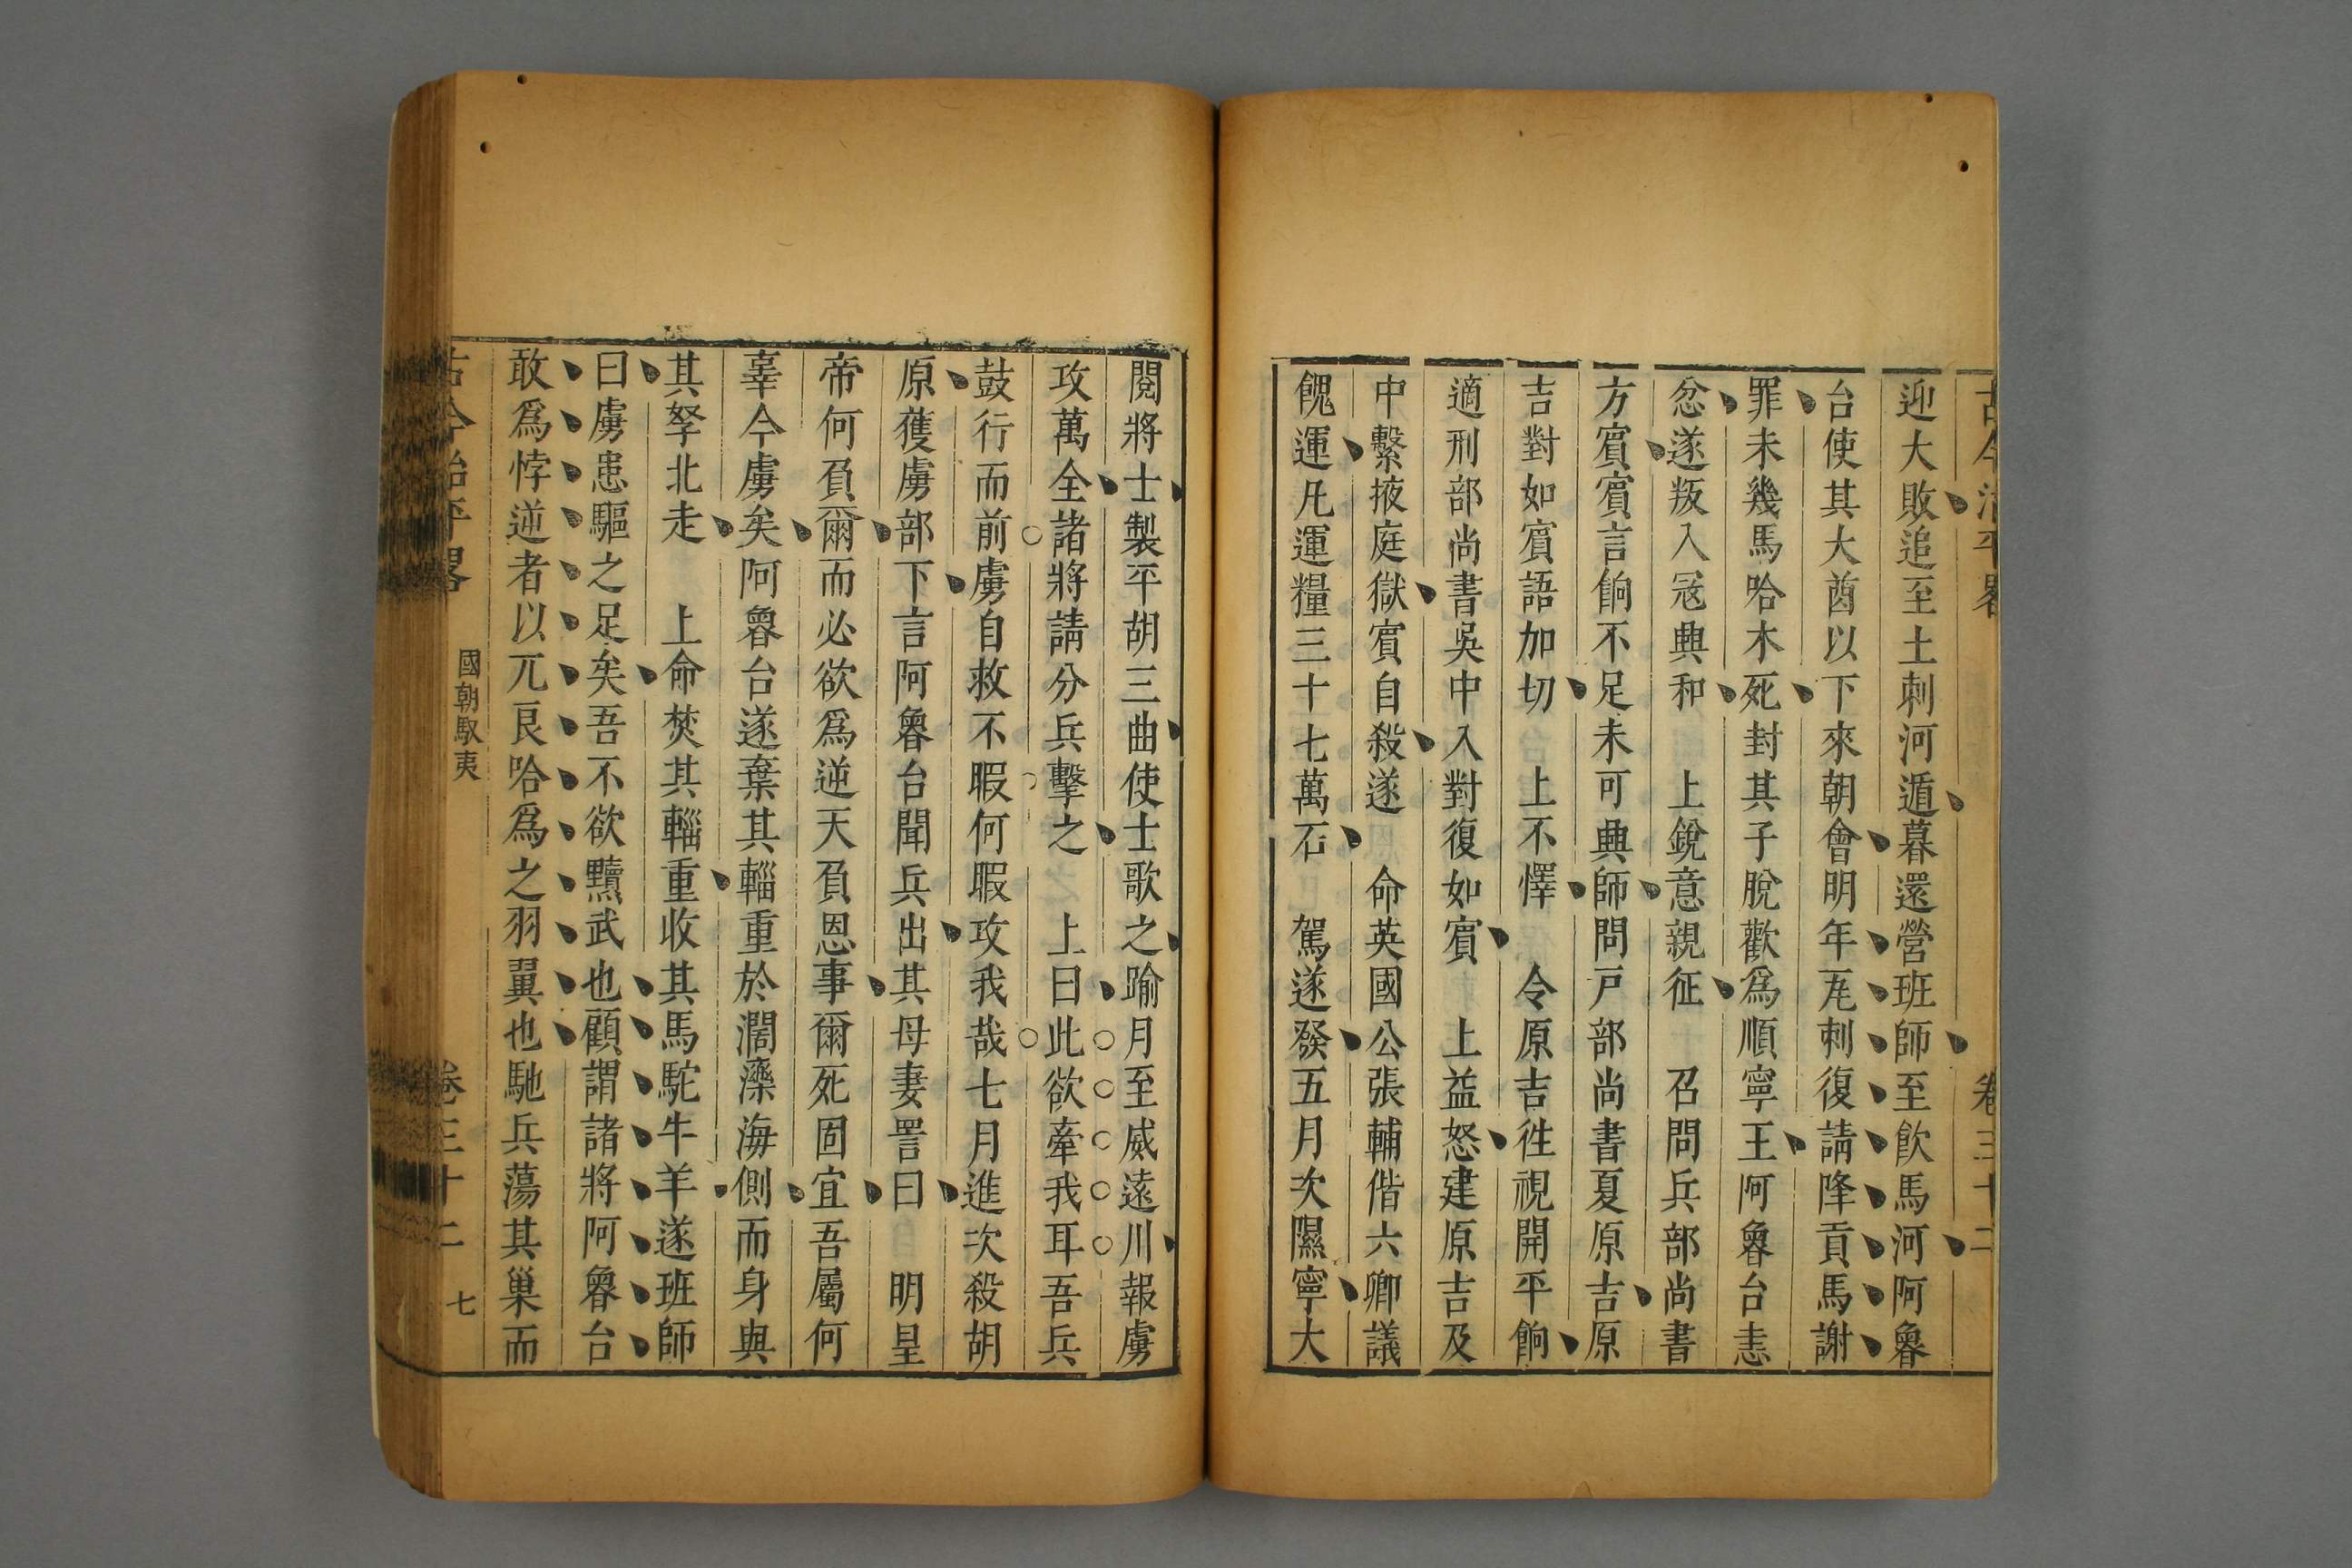 古今治平畧 卷三十二
迎大敗追至土刺河遁暮還營班師至飲馬河阿魯
台使其大酋以下來朝會明年瓦刺復請降貢馬謝
罪未幾馬哈木死封其子脫歡爲順寧王阿魯台恚
忿遂叛入寇興和 上銳意親征 召問兵部尚書
方賔賔言餉不足未可興師問戸部尚書夏原吉原
吉對如賔語加切 上不懌 令原吉徃視開平餉
適刑部尚書吳中入對復如賔 上益怒建原吉及
中繫掖庭獄賔自殺遂 命英國公張輔偕六卿議
餽運凡運糧三十七萬石 駕遂發五月次隰寧大
閱將士製平胡三曲使士歌之踰月至威遠川報虜
攻萬全諸將請分兵擊之 上曰此欲牽我耳吾兵
鼓行而前虜自救不暇何暇攻我哉七月進次殺胡
原獲虜部下言阿魯台聞兵出其母妻詈曰 明皇
帝何負爾而必欲爲逆天負恩事爾死固宜吾屬何
辜今虜矣阿魯台遂棄其輜重於濶灤海側而身與
其孥北走 上命焚其輜重收其馬駝牛羊遂班師
曰虜患驅之足矣吾不欲黷武也顧謂諸將阿魯台
敢爲悖逆者以兀良哈爲之羽翼也馳兵蕩其巢而
古今治平畧 國朝馭夷 卷三十二 七